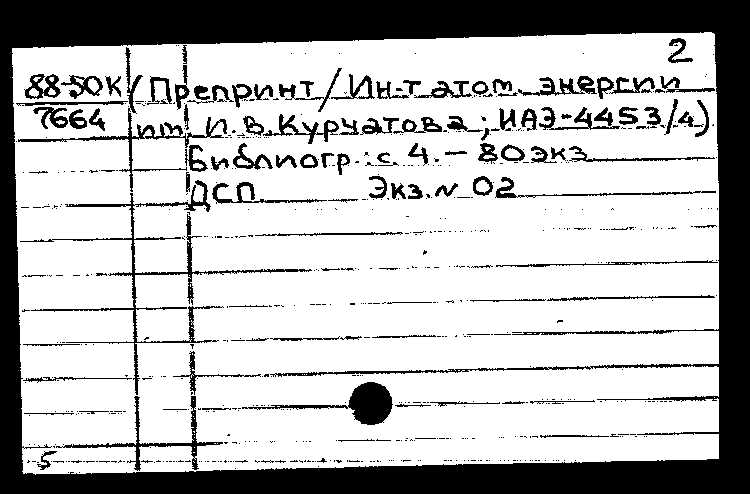 2
88-50К (Препринт/Ин-т атом. энергии
7664 им. И.В.Курчатова; ИАЭ-4453/4)
Библиогр.: с. 4. — 80 экз
ДСП Экз. N 02
5